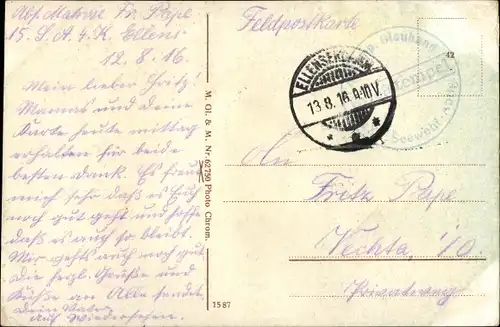 Abs. Matrose Fr. Pape
15. S. A. 4. K. Ellens
12. 8. 16.
Mein lieber Fritz,
Mamas und deine
Karte heute mittag
erhalten für beide
besten Dank. Es freut
mich sehr daß es Euch
noch gut geht und hoffe
daß es auch so bleibt.
Mir gehts auch noch gut
die herzl. Grüße und
Küße an Alle sendet
Dein Vater
Auf Wiedersehen.
M. Gl. & M. Nr. 62750 Photo Chrom.
1587
Feldpostkarte
ELLENSERDAMM
13.8.16.9-10V.
Stempel
Seewehr-
42
An
Fritz Pape
Vechta i/O.